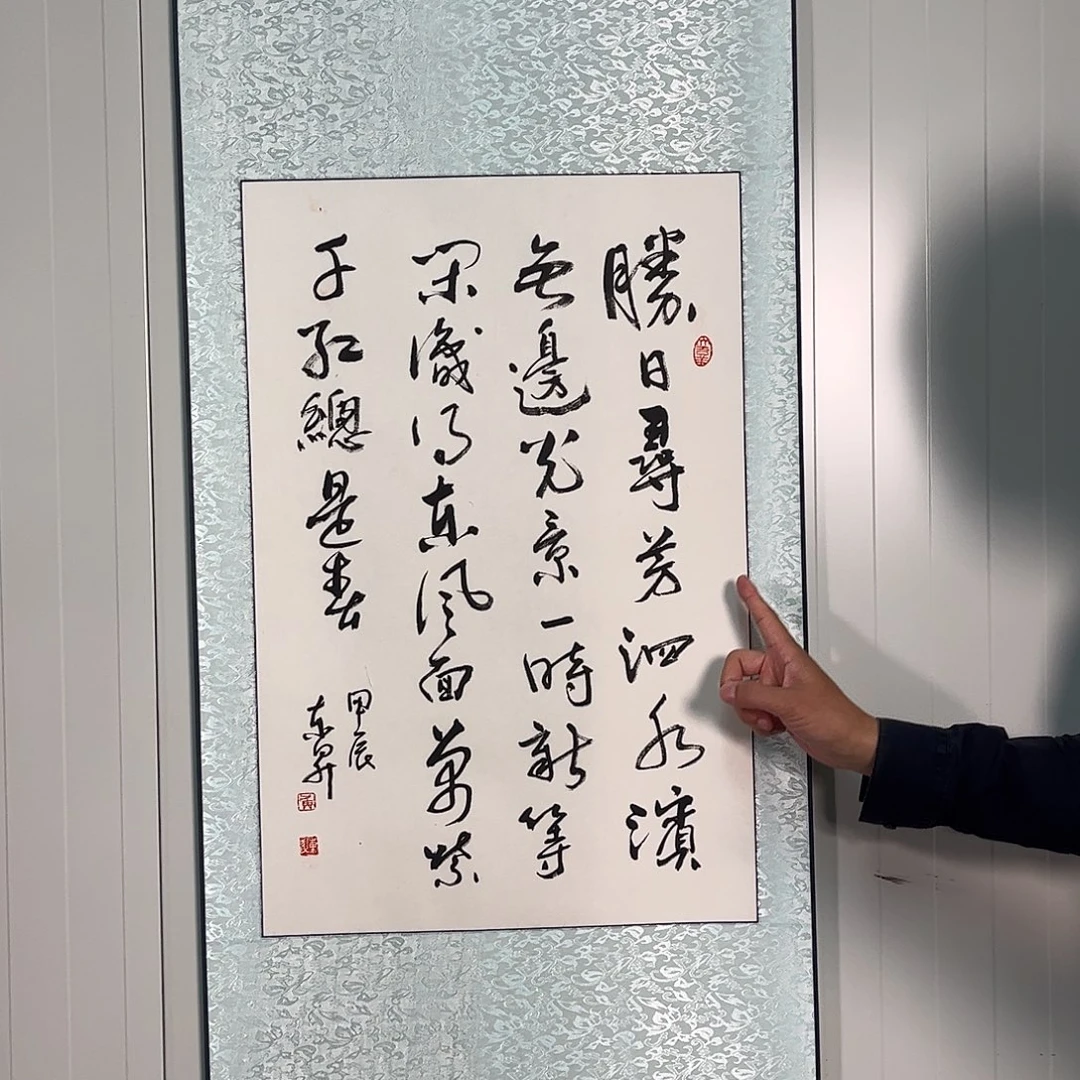 勝日尋芳泗水濱
無邊光景一時新等
閑識得東風面萬紫
千紅總是春
甲辰
東昇